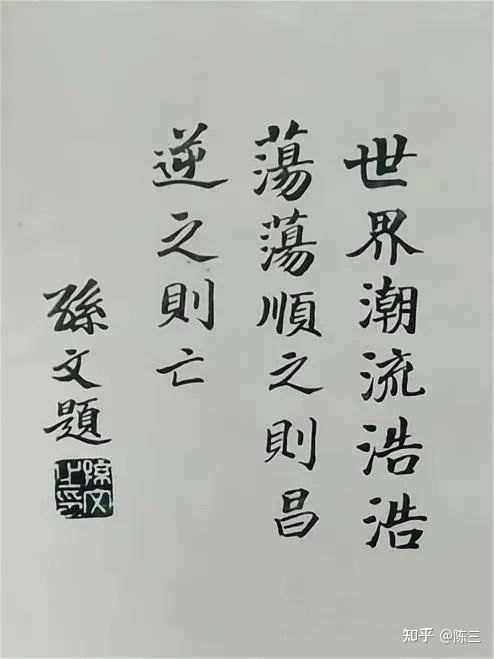 世界潮流浩浩
蕩蕩順之則昌
逆之則亡
孫文題
孫文之印
知乎 @陈三